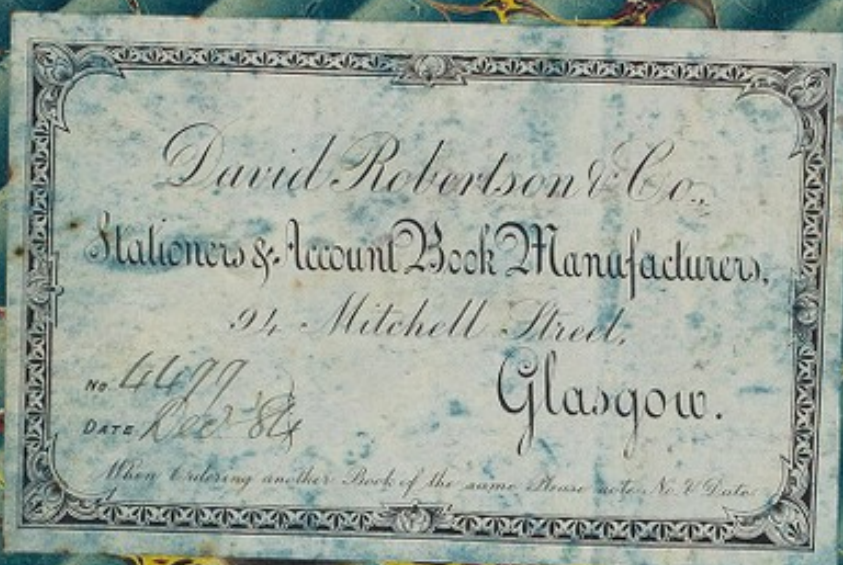 David Robertson & Co.,
Stationers & Account Book Manufacturers,
94 Mitchell Street,
Glasgow.
No. 4499
DATE Dec 84
When Ordering another Book of the same Please note No. & Date